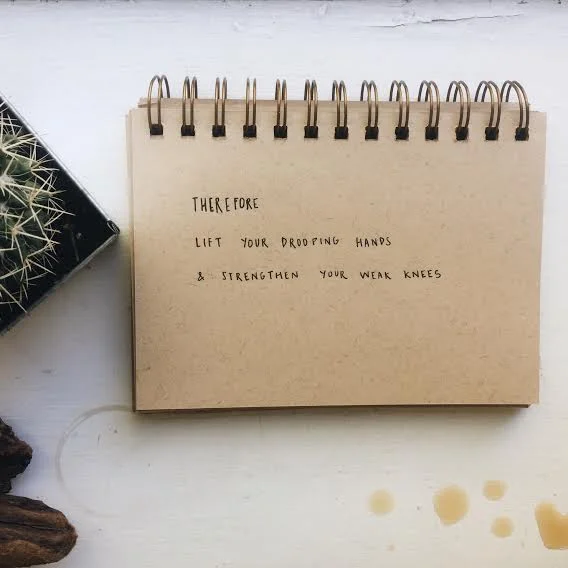 THEREFORE
LIFT YOUR DROOPING HANDS
& STRENGTHEN YOUR WEAK KNEES